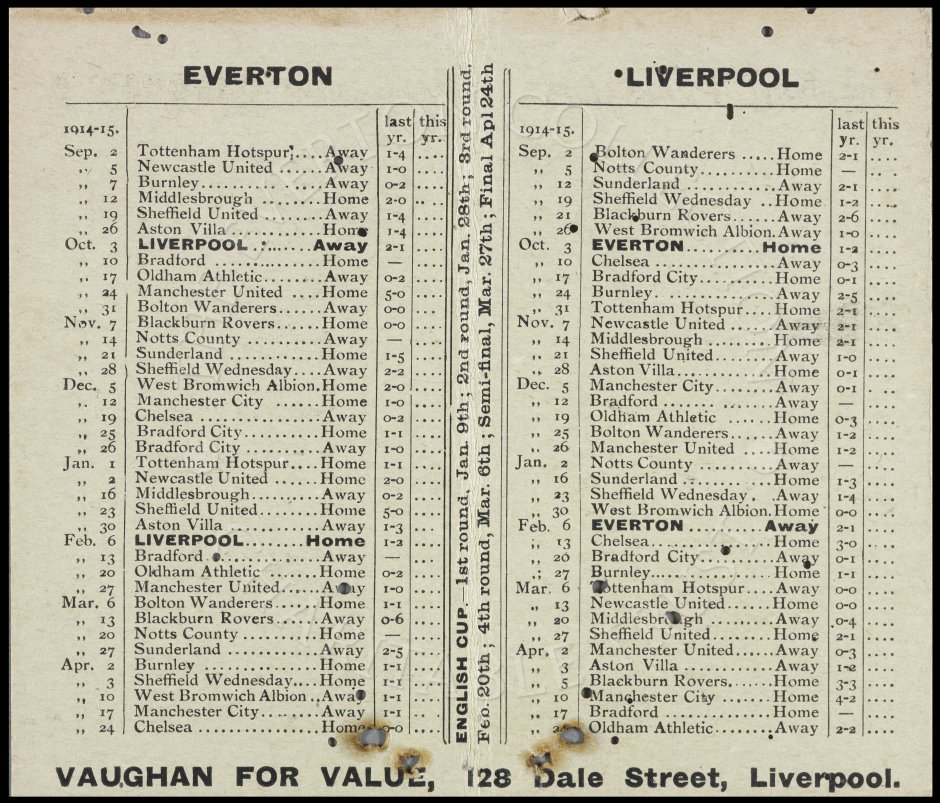 EVERTON
1914-15. last yr. this yr.
Sep. 2 Tottenham Hotspur....Away 1-4 ....
,, 5 Newcastle United ......Away 1-0 ....
,, 7 Burnley..............Away 0-2 ....
,, 12 Middlesbrough ........Home 2-0 ....
,, 19 Sheffield United ......Away 1-4 ....
,, 26 Aston Villa ..........Home 1-4 ....
Oct. 3 LIVERPOOL ......Away 2-1 ....
,, 10 Bradford ..............Home — ....
,, 17 Oldham Athletic........Away 0-2 ....
,, 24 Manchester United ....Home 5-0 ....
,, 31 Bolton Wanderers......Away 0-0 ....
Nov. 7 Blackburn Rovers......Home 0-0 ....
,, 14 Notts County ..........Away — ....
,, 21 Sunderland ..........Home 1-5 ....
,, 28 Sheffield Wednesday....Away 2-2 ....
Dec. 5 West Bromwich Albion.Home 2-0 ....
,, 12 Manchester City ......Home 1-0 ....
,, 19 Chelsea ..............Away 0-2 ....
,, 25 Bradford City..........Home 1-1 ....
,, 26 Bradford City ........Away 1-0 ....
Jan. 1 Tottenham Hotspur....Home 1-1 ....
,, 2 Newcastle United ......Home 2-0 ....
,, 16 Middlesbrough ........Away 0-2 ....
,, 23 Sheffield United........Home 5-0 ....
,, 30 Aston Villa ..........Away 1-3 ....
Feb. 6 LIVERPOOL......Home 1-2 ....
,, 13 Bradford ..............Away — ....
,, 20 Oldham Athletic ......Home 0-2 ....
,, 27 Manchester United....Away 1-0 ....
Mar. 6 Bolton Wanderers......Home 1-1 ....
,, 13 Blackburn Rovers ....Away 0-6 ....
,, 20 Notts County ........Home — ....
,, 27 Sunderland ..........Away 2-5 ....
Apr. 2 Burnley ..............Home 1-1 ....
,, 3 Sheffield Wednesday....Home 1-1 ....
,, 10 West Bromwich Albion..Away 1-1 ....
,, 17 Manchester City........Away 1-1 ....
,, 24 Chelsea ..............Home 0-0 ....
ENGLISH CUP.—1st round, Jan. 9th; 2nd round, Jan. 28th; 3rd round,
Feb. 20th; 4th round, Mar. 6th; Semi-final, Mar. 27th; Final Apl 24th
LIVERPOOL
1914-15. last yr. this yr.
Sep. 2 Bolton Wanderers .....Home 2-1 ....
,, 5 Notts County..........Home — ....
,, 12 Sunderland ..........Away 2-1 ....
,, 19 Sheffield Wednesday ..Home 1-2 ....
,, 21 Blackburn Rovers......Away 2-6 ....
,, 26 West Bromwich Albion.Away 1-0 ....
Oct. 3 EVERTON..........Home 1-2 ....
,, 10 Chelsea ..............Away 0-3 ....
,, 17 Bradford City..........Home 0-1 ....
,, 24 Burnley..............Away 2-5 ....
,, 31 Tottenham Hotspur....Home 2-1 ....
Nov. 7 Newcastle United ......Away 2-1 ....
,, 14 Middlesbrough ........Home 2-1 ....
,, 21 Sheffield United........Away 1-0 ....
,, 28 Aston Villa............Home 0-1 ....
Dec. 5 Manchester City........Away 0-1 ....
,, 12 Bradford ..............Away — ....
,, 19 Oldham Athletic ......Home 0-3 ....
,, 25 Bolton Wanderers......Away 1-2 ....
,, 26 Manchester United ....Home 1-2 ....
Jan. 2 Notts County ........Away — ....
,, 16 Sunderland ..........Home 1-3 ....
,, 23 Sheffield Wednesday ..Away 1-4 ....
,, 30 West Bromwich Albion.Home 0-0 ....
Feb. 6 EVERTON ........Away 2-1 ....
,, 13 Chelsea..............Home 3-0 ....
,, 20 Bradford City..........Away 0-1 ....
,, 27 Burnley..............Home 1-1 ....
Mar. 6 Tottenham Hotspur....Away 0-0 ....
,, 13 Newcastle United......Home 0-0 ....
,, 20 Middlesbrough ........Away 0-4 ....
,, 27 Sheffield United........Home 2-1 ....
Apr. 2 Manchester United......Away 0-3 ....
,, 3 Aston Villa ..........Away 1-2 ....
,, 5 Blackburn Rovers......Home 3-3 ....
,, 10 Manchester City ......Home 4-2 ....
,, 17 Bradford ............Home — ....
Oldham Athletic........Away 2-2 ....
VAUGHAN FOR VALUE, 128 Dale Street, Liverpool.